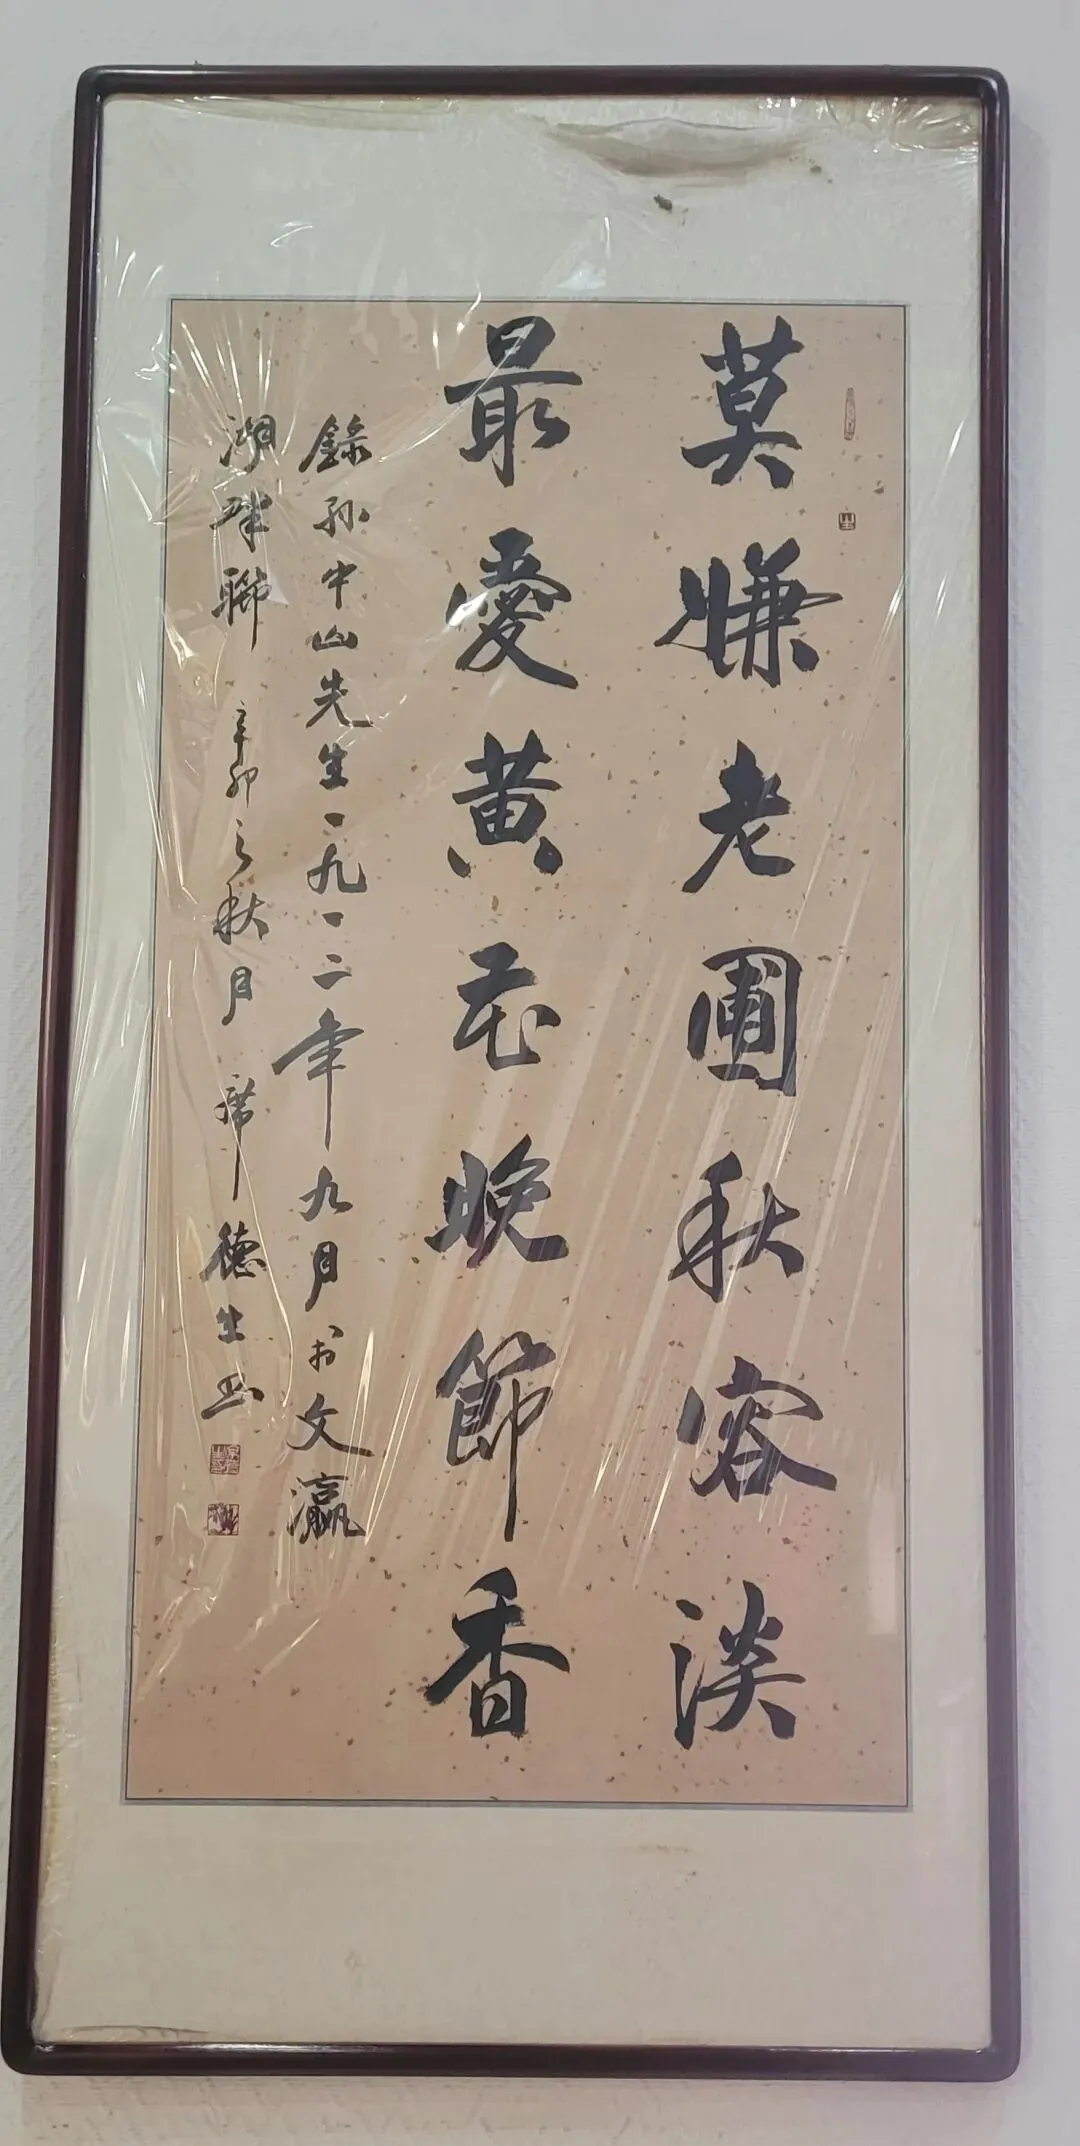 莫嫌老圃秋容淡
最愛黄花晚節香
錄孫中山先生一九一二年九月书文瀛
湖畔聯 辛卯之秋月 席德生书